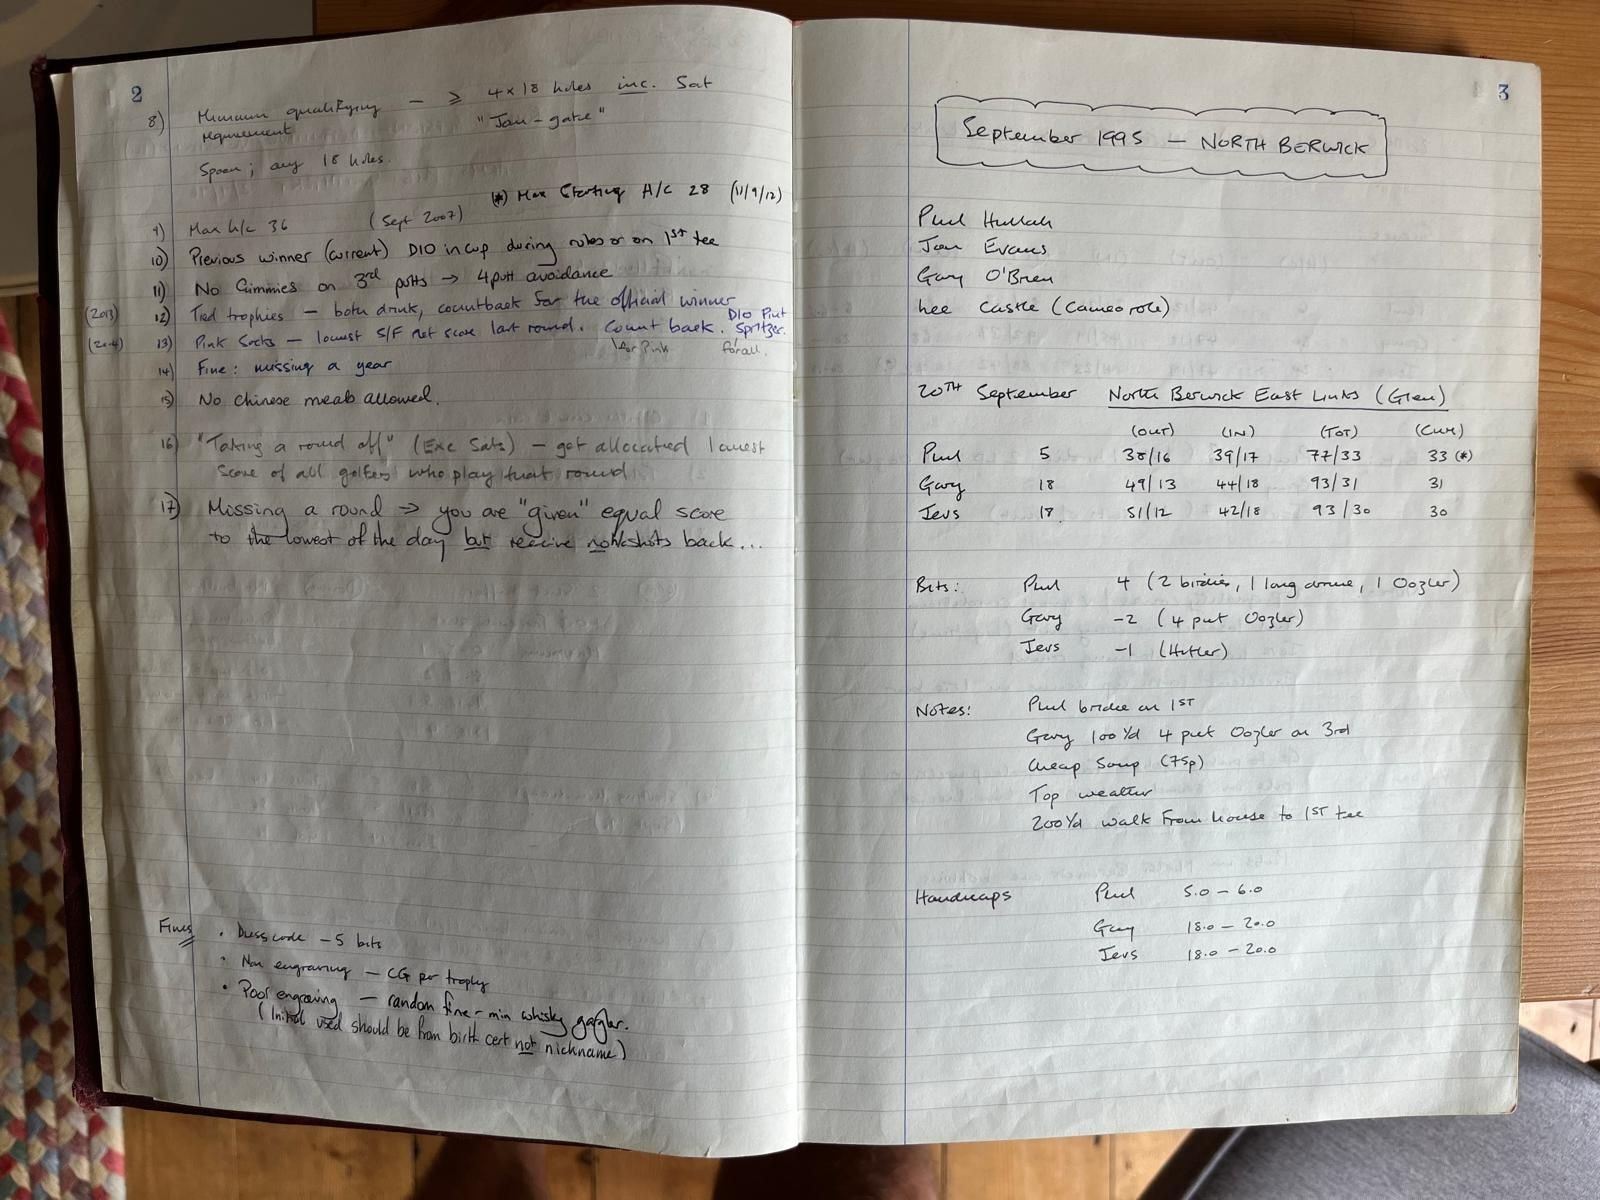 2
8) Minimum qualifying — ≥ 4 x 18 holes inc. Sat
requirement "Jon-gate"
Spoon; any 18 holes.
(*) Max Starting H/C 28 (11/9/12)
9) Max h/c 36 (Sept 2007)
10) Previous winner (current) DIO in cup during rules or on 1ST tee
11) No Gimmies on 3rd putts → 4 putt avoidance
(2013) 12) Tied trophies — both drink, countback for the official winner
DIO Pint
13) Pink Socks — lowest S/F net score last round. Count back. Spritzer.
for Pink for all.
14) Fine: missing a year
15) No Chinese meals allowed.
16) "Taking a round off" (Exc Sats) — get allocated lowest
score of all golfers who play that round
17) Missing a round ⇒ you are "given" equal score
to the lowest of the day but receive no shots back...
Fines
• Dress code — 5 bits
• Non engraving — CG per trophy
• Poor engraving — random fine - min whisky gargler.
(Initial used should be from birth cert not nickname)
3
September 1995 — NORTH BERWICK
Paul Hullah
Jon Evans
Gary O'Brien
Lee Castle (Cameo role)
20TH September North Berwick East Links (Glen)
(OUT) (IN) (TOT) (CUM)
Paul 5 38/16 39/17 77/33 33 (*)
Gary 18 49/13 44/18 93/31 31
Jevs 18 51/12 42/18 93/30 30
Bits: Paul 4 (2 birdies, 1 long drive, 1 Oozler)
Gary -2 (4 put Oozler)
Jevs -1 (Hitler)
Notes: Paul birdie on 1ST
Gary 100 Yd 4 put Oozler on 3rd
Cheap Soup (75p)
Top weather
200Yd walk from house to 1ST tee
Handicaps Paul 5.0 - 6.0
Gary 18.0 - 20.0
Jevs 18.0 - 20.0